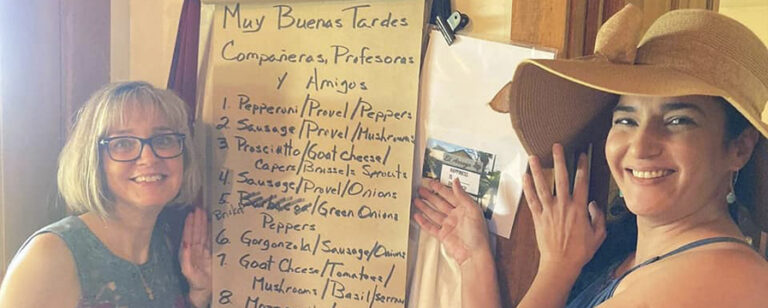 Muy Buenas Tardes
Compañeras, Profesoras
y Amigos
1. Pepperoni/Provel/Peppers
2 Sausage/Provel/Mushrooms
3 Prosciutto/Goat Cheese/
Capers/Brussels Sprouts
4. Sausage/Provel/Onions
5. /Green Onions
Peppers
6. Gorgonzola/Sausage/Onions
7. Goat Cheese/Tomatoes/
Mushrooms/Basil/Serran
8
El Arroyo
HAPPINESS
IS